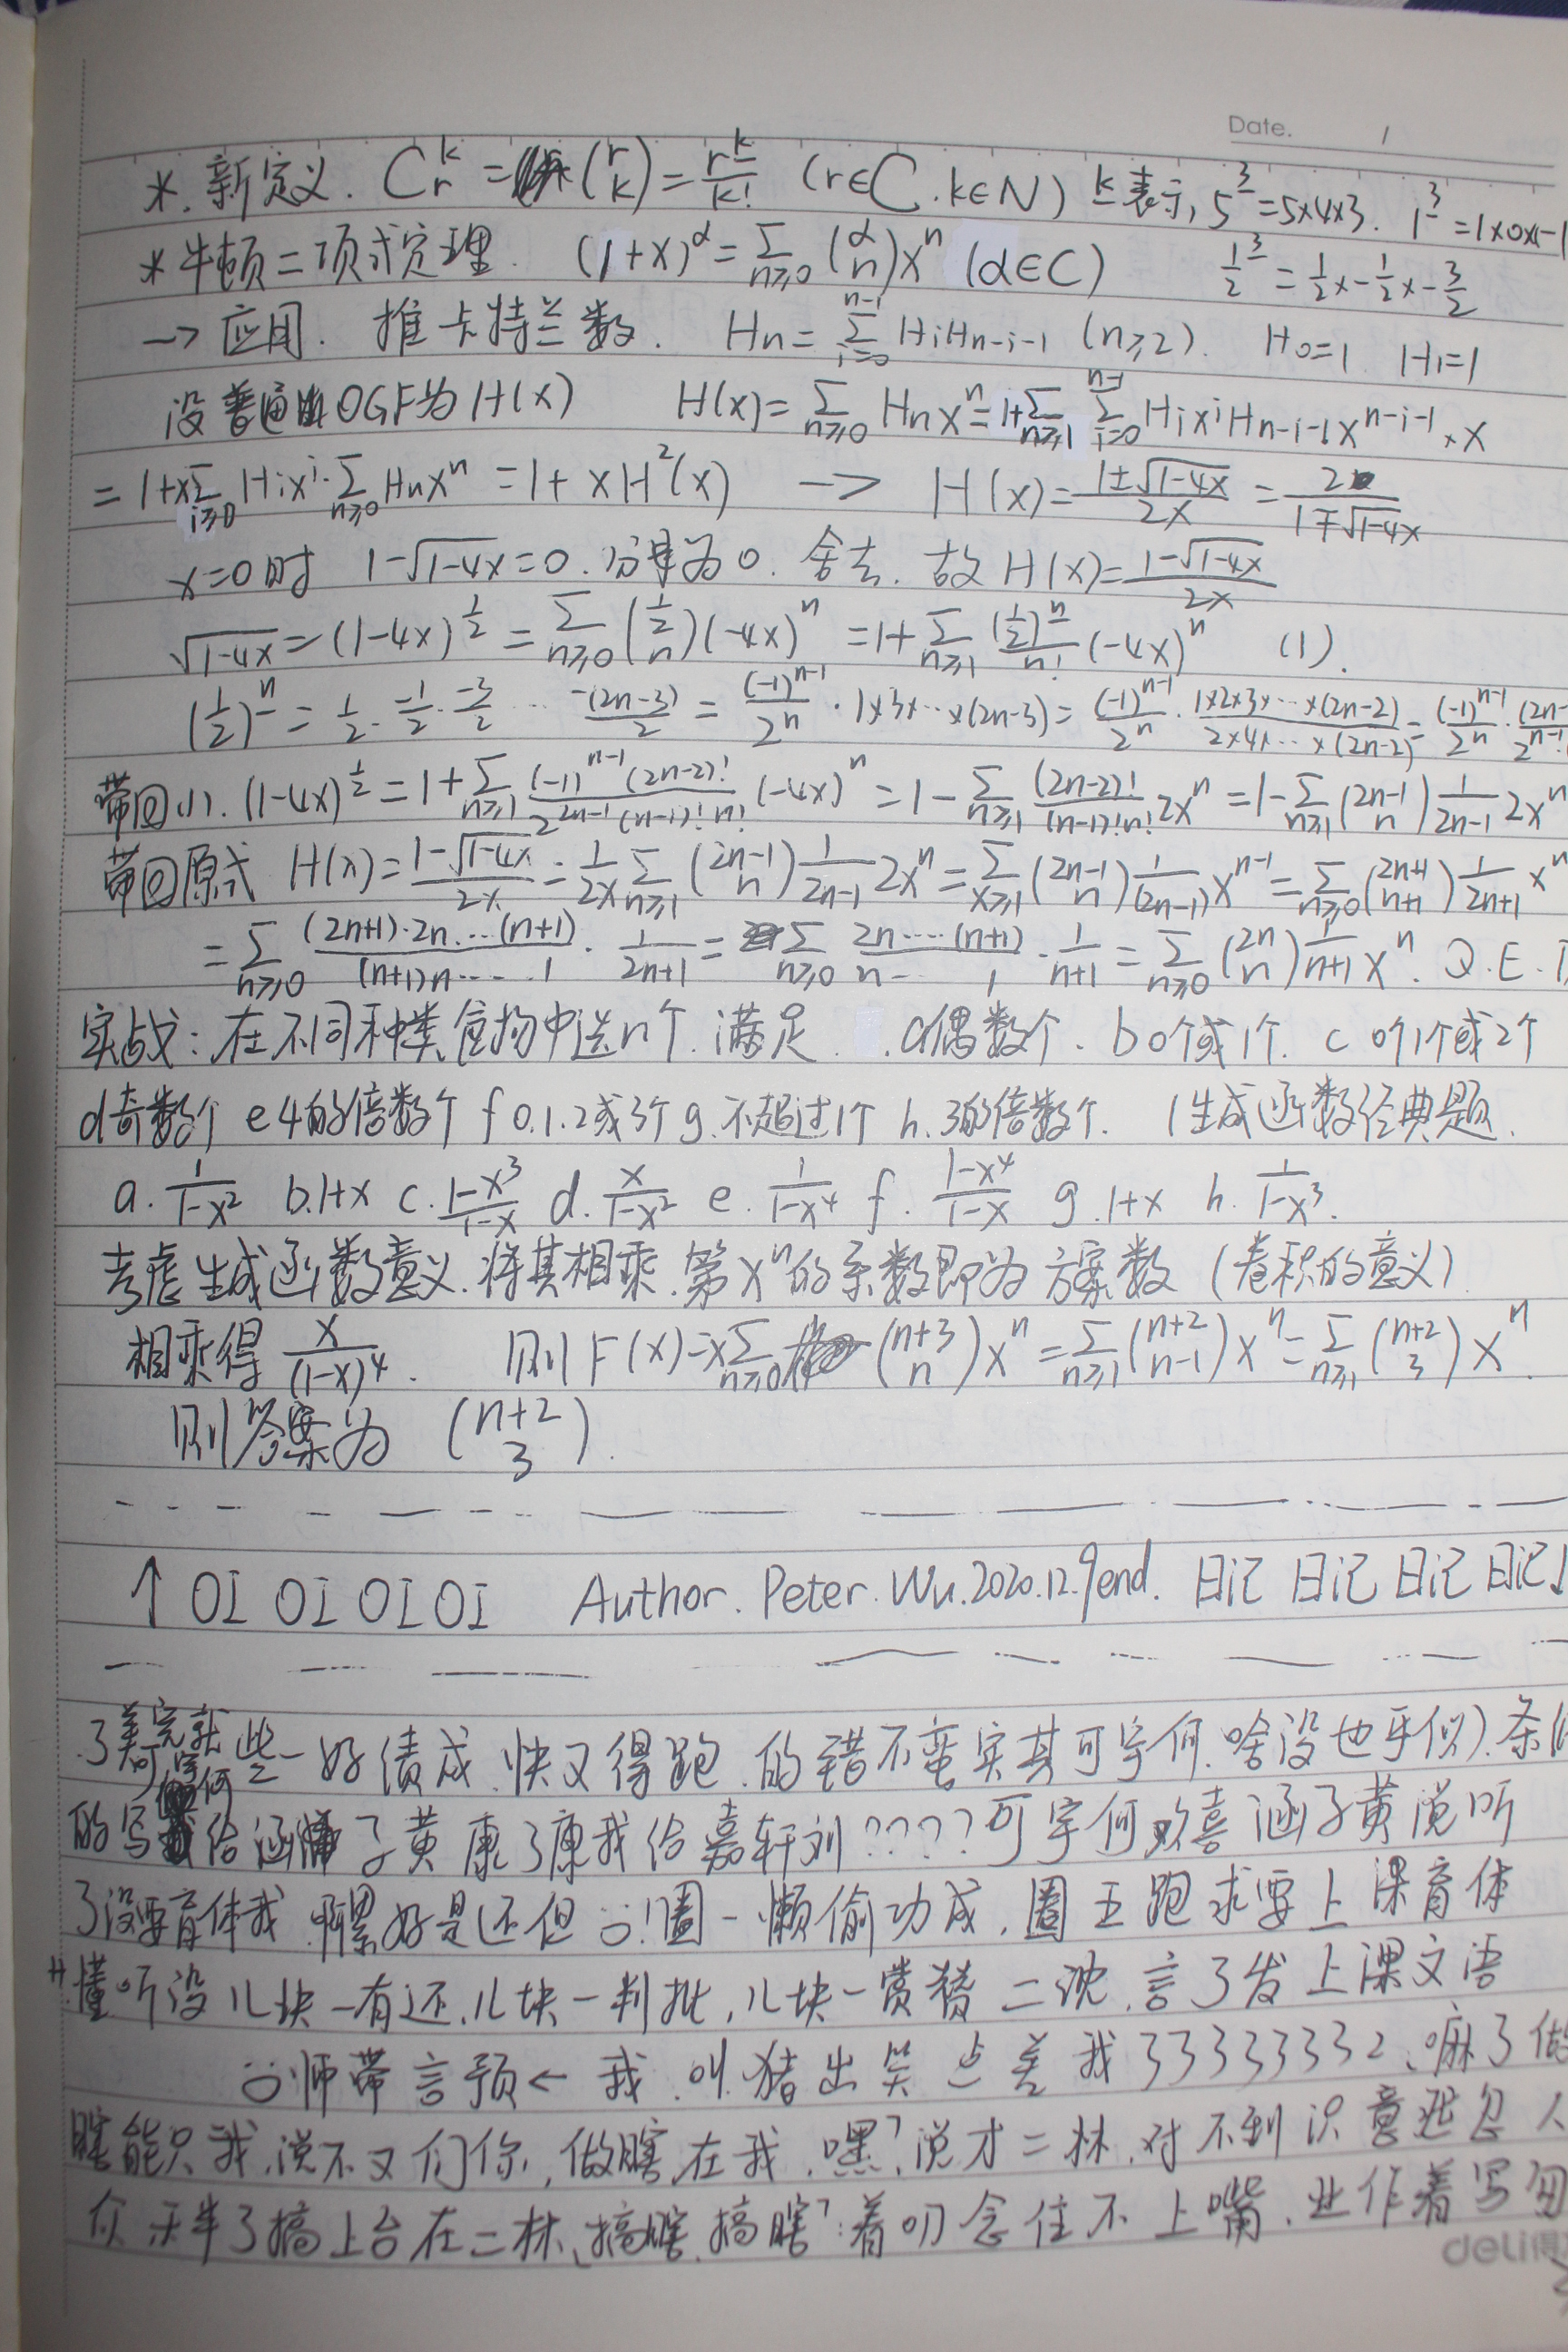 Date.
*.新定义. C_r^k = (r k) = r^k/k! (r∈C.k∈N) k表示, 5^3=5×4×3. 1^3=1×0×(-1
*牛顿二项式定理. (1+x)^α = Σ_{n≥0} (α n) x^n (α∈C) 1/2^3 = 1/2×-1/2×-3/2
→ 应用. 推卡特兰数. Hn = Σ_{i=0}^{n-1} HiHn-i-1 (n≥2). H0=1 H1=1
设普通OGF为H(x) H(x) = Σ_{n≥0} Hnx^n = 1+Σ_{n≥1} Σ_{i=0}^{n-1} Hix^iHn-i-1x^{n-i-1}·x
= 1+xΣ_{i≥0} Hix^i·Σ_{n≥0} Hnx^n = 1+xH²(x) → H(x) = (1±√(1-4x))/2x = 2/(1∓√(1-4x))
x=0时 1-√(1-4x)=0.分母为0.舍去.故H(x)=(1-√(1-4x))/2x
√(1-4x) = (1-4x)^{1/2} = Σ_{n≥0} (1/2 n)(-4x)^n = 1+Σ_{n≥1} (1/2)^n/n! (-4x)^n (1).
(1/2)^n = 1/2·-1/2·-3/2 ··· -(2n-3)/2 = (-1)^{n-1}/2^n · 1×3×···×(2n-3) = (-1)^{n-1}/2^n · 1×2×3×···×(2n-2)/2×4×···×(2n-2) = (-1)^{n-1}/2^n · (2n-/2^{n-1}·
带回(1). (1-4x)^{1/2} = 1+Σ_{n≥1} (-1)^{n-1}(2n-2)!/2^{2n-1}(n-1)!n! (-4x)^n = 1-Σ_{n≥1} (2n-2)!/(n-1)!n! 2x^n = 1-Σ_{n≥1} (2n-1 n) 1/(2n-1) 2x^n
带回原式 H(x) = (1-√(1-4x))/2x = 1/2x Σ_{n≥1} (2n-1 n) 1/(2n-1) 2x^n = Σ_{x≥1} (2n-1 n) 1/(2n-1) x^{n-1} = Σ_{n≥0} (2n+1 n+1) 1/(2n+1) x^n
= Σ_{n≥0} (2n+1)·2n···(n+1)/(n+1)n····1 · 1/(2n+1) = Σ_{n≥0} 2n····(n+1)/n···1 · 1/(n+1) = Σ_{n≥0} (2n n) 1/(n+1) x^n. Q.E.D
实战:在不同种类食物中选n个.满足 .a偶数个. b 0个或1个. c 0个1个或2个
d奇数个 e4的倍数个 f 0.1.2或3个 g.不超过1个 h.3的倍数个. (生成函数经典题.
a. 1/(1-x²) b.1+x c. (1-x³)/(1-x) d. x/(1-x²) e. 1/(1-x⁴) f. (1-x⁴)/(1-x) g.1+x h. 1/(1-x³).
考虑生成函数意义.将其相乘.第x^n的系数即为方案数(卷积的意义)
相乘得 x/(1-x)⁴. 则F(x)=xΣ_{n≥0} (n+3 n)x^n = Σ_{n≥1} (n+2 n-1)x^n = Σ_{n≥1} (n+2 3)x^n.
则答案为 (n+2 3).
↑ OI OI OI OI Author. Peter. Wu.2020.12.9end. 日记 日记 日记 日记↓
些一好绩成.快又得跑.的错不蛮实其可宇何.啥没也乎似).条
的写给涵子黄康了康我给嘉轩刘????可宇何欢喜涵子黄说听
了没要育体我.累好是还但 !圈一懒偷功成,圈五跑求要上课育体
"懂听没儿块一有还,儿块一判批,儿块一赏赞二沈,言了发上课文语
师带言预←我.叫猪出笑点差我33333332、嘛了做
瞎能只我,说不又们你,做瞎在我,嘿?说才二林.对不到识意班忽人
了搞上台在二林、搞瞎搞瞎?:着叨念住不上嘴.业作着写
deli得